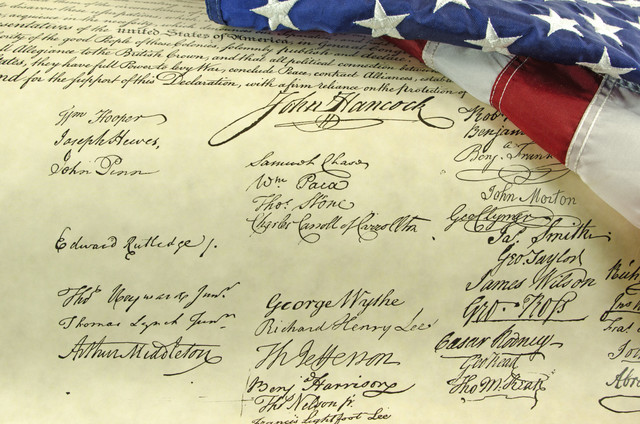 United States of America
of the good People of these Colonies solemnly publish
all Allegiance to the British Crown, and that all political connection
they have full Power to levy War, conclude Peace, contract Alliances,
for the support of this Declaration, with a firm reliance on the protection of
John Hancock
Wm Hooper
Joseph Hewes,
John Penn
Edward Rutledge /.
Thos Heyward Junr.
Thomas Lynch Junr.
Arthur Middleton
Samuel Chase
Wm. Paca
Thos. Stone
Charles Carroll of Carrollton
George Wythe
Richard Henry Lee
Th Jefferson
Benj. Harrison
Thos Nelson jr.
Francis Lightfoot Lee
Rob
Benjamin
Benj. Frank
John Morton
Geo Clymer
Jas. Smith
Geo. Taylor
James Wilson
Geo. Ross
Caesar Rodney
Geo Read
Tho M:Kean